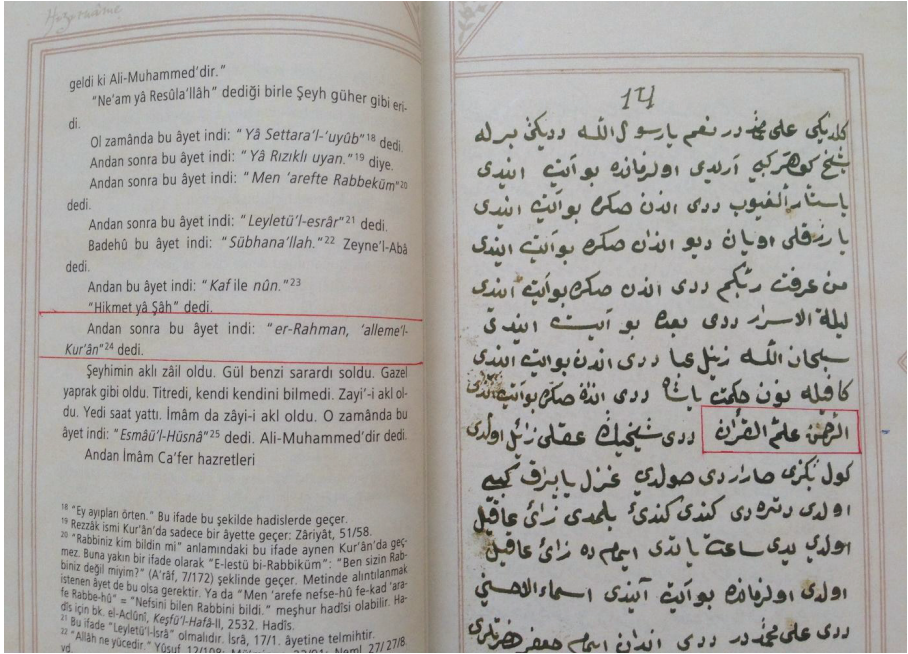 geldi ki Ali-Muhammed'dir."
"Ne'am yâ Resûla'llâh" dediği birle Şeyh güher gibi eri-
di.
Ol zamânda bu âyet indi: "Yâ Settara'l-'uyûb"18 dedi.
Andan sonra bu âyet indi: "Yâ Rızıklı uyan."19 diye.
Andan sonra bu âyet indi: "Men 'arefte Rabbeküm"20
dedi.
Andan sonra bu âyet indi: "Leyletü'l-esrâr"21 dedi.
Badehû bu âyet indi: "Sübhana'llah."22 Zeyne'l-Abâ
dedi.
Andan bu âyet indi: "Kaf ile nûn."23
"Hikmet yâ Şâh" dedi.
Andan sonra bu âyet indi: "er-Rahman, 'alleme'l-
Kur'ân"24 dedi.
Şeyhimin aklı zâil oldu. Gül benzi sarardı soldu. Gazel
yaprak gibi oldu. Titredi, kendi kendini bilmedi. Zayi'-i akl ol-
du. Yedi saat yattı. İmâm da zâyi-i akl oldu. O zamânda bu
âyet indi: "Esmâü'l-Hüsnâ"25 dedi. Ali-Muhammed'dir dedi.
Andan İmâm Ca'fer hazretleri
18 "Ey ayıpları örten." Bu ifade bu şekilde hadislerde geçer.
19 Rezzâk ismi Kur'ân'da sadece bir âyette geçer; Zâriyât, 51/58.
20 "Rabbiniz kim bildin mi" anlamındaki bu ifade aynen Kur'ân'da geç-
mez. Buna yakın bir ifade olarak "E-lestü bi-Rabbiküm": "Ben sizin Rab-
biniz değil miyim?" (A'râf, 7/172) şeklinde geçer. Metinde alıntılanmak
istenen âyet de bu olsa gerektir. Ya da "Men 'arefe nefse-hû fe-kad 'ara-
fe Rabbe-hû" = "Nefsini bilen Rabbini bildi." meşhur hadîsi olabilir. Ha-
dîs için bk. el-Aclûnî, Keşfü'l-Hafâ-II, 2532. Hadîs.
21 Bu ifade "Leyletü'l-İsrâ" olmalıdır. İsrâ, 17/1. âyetine telmihtir.
22 "Allâh ne yücedir." Yûsuf, 12/108; Neml, 27/8
vd.
14
كلديكى على محمد در نعم يارسول الله دديكى برله
شيخ كوهر كبى اريدى اولزمانده بو آيت ايندى
ياستار الغيوب ددى اندن صكره بوآيت ايندى
يا رزقلى اويان ديو اندن صكره بوآيت ايندى
من عرفت ربكم ددى اندن صكره بوآيت ايندى
ليلة الاسرار ددى بعده بو آيت ايندى
سبحان الله زينل عبا ددى اندن بوآيت ايندى
كافيله نون حكمت ياشاه ددى اندن صكره بوآيت ايندى
الرحمن علم القرآن ددى شيخيمك عقلى زائل اولدى
كول بكزى صاراردى صولدى غزل يايراق كبى
اولدى دتره دى كندى كندى بلمدى زائ عاقيل
اولدي يدى ساعت ياتدى ايمام ده زائ عاقيل
اولدى اولزمانده بوآيت ايندى اسماء الاحسنى
ددى على محمد در ددى اندن ايمام جعفر حضرتلرى